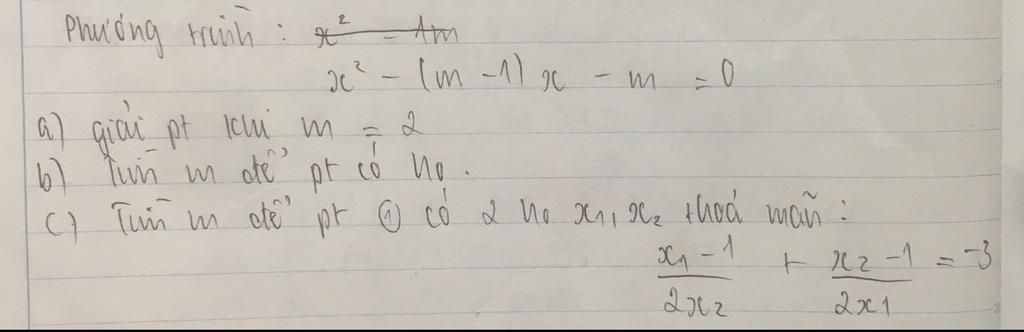 Phương trình : x² - 4m
x² - (m - 1) x - m = 0
a) giải pt khi m = 2
b) Tìm m để pt có no.
c) Tìm m để pt ① có 2 no x₁, x₂ thoả mãn :
(x₁ - 1)/(2x₂) + (x₂ - 1)/(2x₁) = -3